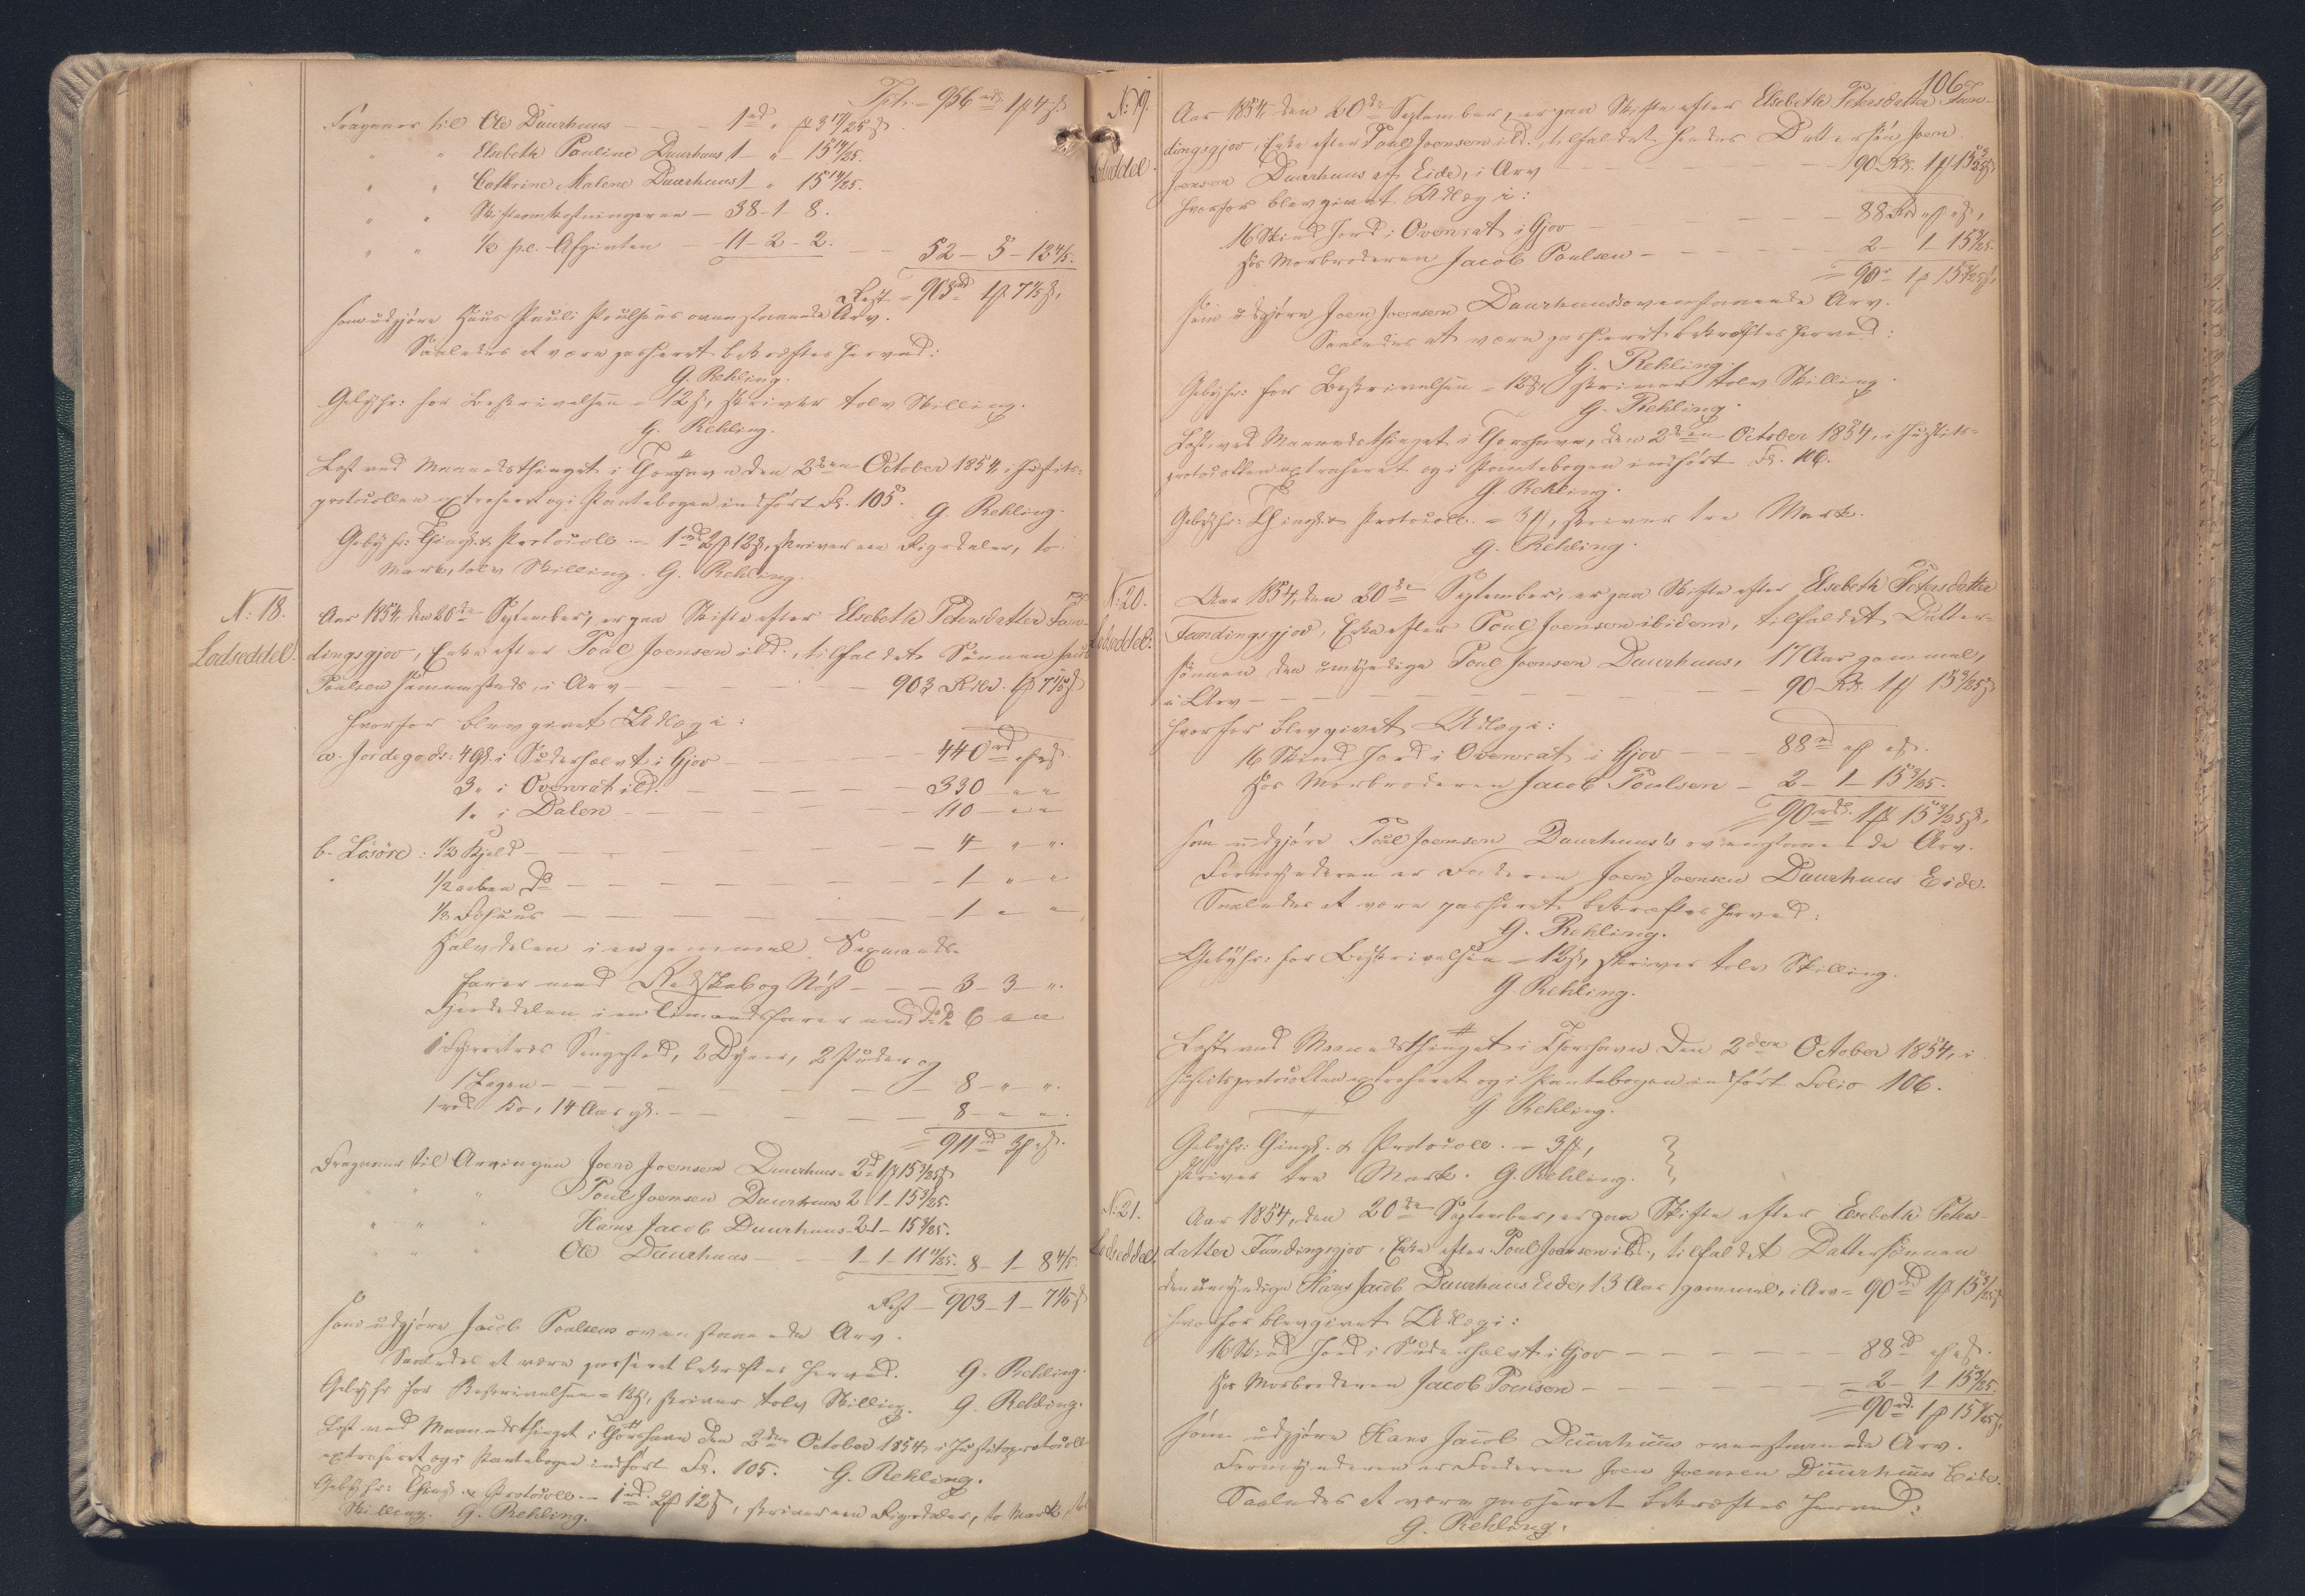 Tsp. - 956 rd 1 ƒ 4 s.
Fragaaer til Ole Duurhuus - - 1 rd " ƒ 3 19/25 s.
" " Elsebeth Pauline Duurhuus 1 - " - 15 19/25.
" " Cathrine Malene Duurhuus 1 - " 15 19/25.
" " Skifteomkostningerne - 38 - 1 - 8.
" " 1/2 p.c. Afgivten - 11 - 2 - 2. - - 52 - 5 - 12 4/5.
Rest = 903 rd 1 ƒ 7 1/5 s.
som udgjøre Hans Pauli Poulsens ovenstaaende Arv.
Saaledes at være passeret bekræftes herved:
G. Rehling.
Gebyhr: for Beskrivelsen = 12 s, skriver tolv Skilling.
G. Rehling.
Læst ved Maanedsthinget i Thorshavn den 2den October 1854, i Justits-
protocollen extraheret og i Pantebogen indført Fol. 105. G. Rehling.
Gebyhr: Thingl. & Protocoll. - 1 rd 2 ƒ 12 s, skriver een Rigsdaler, to
Mark, tolv Skilling. G. Rehling.
N: 18.
Lodseddel.
Aar 1854, den 20de September, er paa Skifte efter Elsebeth Petersdatter Fun-
dingsgjov, Enke efter Poul Joensen ibd., tilfaldet Sønnen Jacob
Poulsen sammesteds, i Arv - - - 903 Rbd. 1 ƒ 7 1/5 s
hvorfor blev givet Udlæg i:
a. Jordegods: 4 Gl. i Suderhælvt i Gjov - - - 440 rd " ƒ " s.
3 " i Ovenrat ibd. - - - 330 " "
1 " i Dalen - - - 110 - " "
b. Løsøre: 1/2 Hjeld - - - 4 " "
1/2 aaben Do - - - 1 " "
1/2 Fæhuus - - - 1 " "
Halvdelen i en gammel Sexmands-
farer med Redskab og Nøst - - - 3 - 3 - ".
Fjerdedelen i en Timandsfarer med Do Do 6 " "
1 Fyrretræs Sengested, 2 Dyner, 2 Puder og
1 Lagen - - - 8 - " - ".
1 rød Ko, 14 Aar gl. - - - 8 - " ".
= 911 rd 3 ƒ " s.
Fragaaer til Arvingen Joen Joensen Duurhuus - 2 rd 1 ƒ 15 3/25 s
" " " Poul Joensen Duurhuus 2 - 1 - 15 3/25.
" " " Hans Jacob Duurhuus - 2 - 1 - 15 3/25.
" " " Ole Duurhuus - - 1 - 1 - 11 11/25. 8 - 1 - 8 4/5.
Rest - 903 - 1 - 7 1/5 s
som udgjøre Jacob Poulsens ovenstaaende Arv.
Saaledes at være passeret bekræftes herved. G. Rehling.
Gebyhr for Beskrivelsen = 12 s, skriver tolv Skilling. G. Rehling.
Læst ved Maanedsthinget i Thorshavn den 2den October 1854, i Justitsprotocoll.
extraheret og i Pantebogen indført Fol. 105. G. Rehling.
Gebyhr: Thingl. & Protocoll. - 1 rd. 2 ƒ 12 s, skriver een Rigsdaler, to Mark, tolv
Skilling. G. Rehling.
106.
N: 19.
Lodseddel.
Aar 1854, den 20de September, er paa Skifte efter Elsebeth Petersdatter Fun-
dingsgjov, Enke efter Poul Joensen ibd., tilfaldet hendes Dattersøn Joen
Joensen Duurhuus af Eide, i Arv - - - 90 Rd. 1 ƒ 15 3/25 s
hvorfor blev givet Udlæg i:
16 Skind Jord i Ovenrat i Gjov - - - 88 Rd " ƒ " s.
Hos Morbroderen Jacob Poulsen - - - 2 - 1 - 15 3/25.
= 90 rd 1 ƒ 15 3/25 s.
som udgjøre Joen Joensen Duurhuus's ovenstaaende Arv.
Saaledes at være passeret bekræftes herved:
G. Rehling.
Gebyhr: for Beskrivelsen = 12 s, skriver tolv Skilling.
G. Rehling.
Læst ved Maanedsthinget i Thorshavn, den 2den October 1854, i Justits-
protocollen extraheret og i Pantebogen indført Fol. 106.
G. Rehling.
Gebyhr: Thingl. & Protocoll. = 3 ƒ, skriver tre Mark.
G. Rehling.
N: 20.
Lodseddel.
Aar 1854, den 20de September, er paa Skifte efter Elsebeth Petersdatter
Fundingsgjov, Enke efter Poul Joensen ibidem, tilfaldet Datter-
sønnen den umyndige Poul Joensen Duurhuus, 17 Aar gammel,
i Arv - - - 90 Rd. 1 ƒ 15 3/25 s
hvorfor blev givet Udlæg i:
16 Skind Jord i Ovenrat i Gjov - - 88 rd " ƒ " s.
Hos Morbroderen Jacob Poulsen - 2 - 1 - 15 3/25.
= 90 rd. 1 ƒ 15 3/25 s.
som udgjøre Poul Joensen Duurhuus's ovenstaaende Arv.
Formynderen er Faderen Joen Joensen Duurhuus Eide.
Saaledes at være passeret bekræftes herved:
G. Rehling.
Gebyhr: for Beskrivelsen = 12 s, skriver tolv Skilling.
G. Rehling.
Læst ved Maanedsthinget i Thorshavn den 2den October 1854, i
Justitsprotocollen extraheret og i Pantebogen indført Folio 106.
G. Rehling.
Gebyhr: Thingl. & Protocoll. - 3 ƒ,
skriver tre Mark. G. Rehling.
N: 21.
Lodseddel.
Aar 1854, den 20de September, er paa Skifte efter Elsebeth Peters-
datter Fundingsgjov, Enke efter Poul Joensen ibd., tilfaldet Dattersønnen
den umyndige Hans Jacob Duurhuus Eide, 13 Aar gammel, i Arv = 90 rd 1 ƒ 15 3/25 s
hvorfor blev givet Udlæg i:
16 Skind Jord i Suderhælvt i Gjov - - - 88 rd " ƒ " s.
Hos Morbroderen Jacob Poulsen - - - 2 - 1 15 3/25.
= 90 rd. 1 ƒ 15 3/25 s.
som udgjøre Hans Jacob Duurhuus ovenstaaende Arv.
Formynderen er Faderen Joen Joensen Duurhuus Eide.
Saaledes at være passeret bekræftes herved:
G. Rehling.